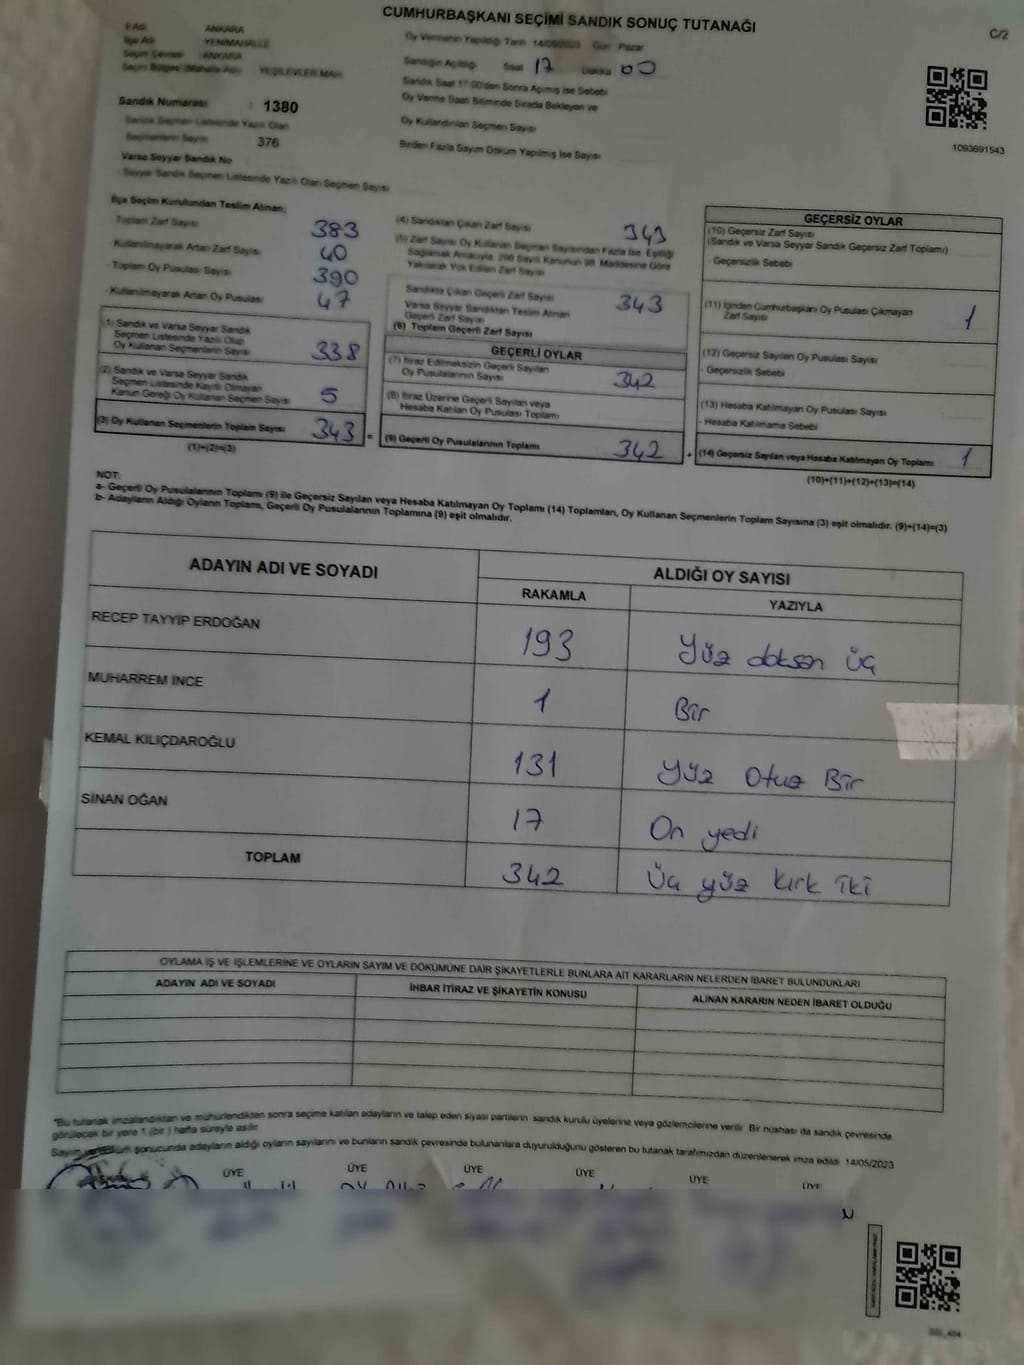 CUMHURBAŞKANI SEÇİMİ SANDIK SONUÇ TUTANAĞI
C/2
İl Adı ANKARA
İlçe Adı YENİMAHALLE
Seçim Çevresi ANKARA
Seçim Bölgesi (Mahalle Adı) YEŞİLEVLER MAH.
Sandık Numarası : 1380
Sandık Seçmen Listesinde Yazılı Olan
Seçmenlerin Sayısı 376
Varsa Seyyar Sandık No
Seyyar Sandık Seçmen Listesinde Yazılı Olan Seçmen Sayısı
Oy Vermenin Yapıldığı Tarih 14/05/2023 Gün Pazar
Sandığın Açıldığı Saat 17 Dakika 00
Sandık Saat 17:00'den Sonra Açılmış İse Sebebi
Oy Verme Saati Bitiminde Sırada Bekleyen ve
Oy Kullandırılan Seçmen Sayısı
Birden Fazla Sayım Döküm Yapılmış İse Sayısı
1093691543
İlçe Seçim Kurulundan Teslim Alınan;
Toplam Zarf Sayısı 383
- Kullanılmayarak Artan Zarf Sayısı 40
Toplam Oy Pusulası Sayısı 390
- Kullanılmayarak Artan Oy Pusulası 47
(1) Sandık ve Varsa Seyyar Sandık
Seçmen Listesinde Yazılı Olup
Oy Kullanan Seçmenlerin Sayısı 338
(2) Sandık ve Varsa Seyyar Sandık
Seçmen Listesinde Kayıtlı Olmayan
Kanun Gereği Oy Kullanan Seçmen Sayısı 5
(3) Oy Kullanan Seçmenlerin Toplam Sayısı 343 =
(1)+(2)=(3)
(4) Sandıktan Çıkan Zarf Sayısı 343
(5) Zarf Sayısı Oy Kullanan Seçmen Sayısından Fazla İse, Eşitliği
Sağlamak Amacıyla, 298 Sayılı Kanunun 98. Maddesine Göre
Yakılarak Yok Edilen Zarf Sayısı
Sandıkta Çıkan Geçerli Zarf Sayısı 343
Varsa Seyyar Sandıktan Teslim Alınan
Geçerli Zarf Sayısı
(6) Toplam Geçerli Zarf Sayısı
GEÇERLİ OYLAR
(7) İtiraz Edilmeksizin Geçerli Sayılan
Oy Pusulalarının Sayısı 342
(8) İtiraz Üzerine Geçerli Sayılan veya
Hesaba Katılan Oy Pusulası Toplamı
(9) Geçerli Oy Pusulalarının Toplamı 342 +
GEÇERSİZ OYLAR
(10) Geçersiz Zarf Sayısı
(Sandık ve Varsa Seyyar Sandık Geçersiz Zarf Toplamı)
- Geçersizlik Sebebi
(11) İçinden Cumhurbaşkanı Oy Pusulası Çıkmayan
Zarf Sayısı 1
(12) Geçersiz Sayılan Oy Pusulası Sayısı
- Geçersizlik Sebebi
(13) Hesaba Katılmayan Oy Pusulası Sayısı
- Hesaba Katılmama Sebebi
(14) Geçersiz Sayılan veya Hesaba Katılmayan Oy Toplamı 1
(10)+(11)+(12)+(13)=(14)
NOT:
a- Geçerli Oy Pusulalarının Toplamı (9) ile Geçersiz Sayılan veya Hesaba Katılmayan Oy Toplamı (14) Toplamları, Oy Kullanan Seçmenlerin Toplam Sayısına (3) eşit olmalıdır. (9)+(14)=(3)
b- Adayların Aldığı Oyların Toplamı, Geçerli Oy Pusulalarının Toplamına (9) eşit olmalıdır.
ADAYIN ADI VE SOYADI ALDIĞI OY SAYISI
RAKAMLA YAZIYLA
RECEP TAYYİP ERDOĞAN 193 Yüz doksan üç
MUHARREM İNCE 1 Bir
KEMAL KILIÇDAROĞLU 131 Yüz Otuz Bir
SİNAN OĞAN 17 On yedi
TOPLAM 342 Üç yüz kırk iki
OYLAMA İŞ VE İŞLEMLERİNE VE OYLARIN SAYIM VE DÖKÜMÜNE DAİR ŞİKAYETLERLE BUNLARA AİT KARARLARIN NELERDEN İBARET BULUNDUKLARI
ADAYIN ADI VE SOYADI İHBAR İTİRAZ VE ŞİKAYETİN KONUSU ALINAN KARARIN NEDEN İBARET OLDUĞU
*Bu tutanak imzalandıktan ve mühürlendikten sonra seçime katılan adayların ve talep eden siyasi partilerin sandık kurulu üyelerine veya gözlemcilerine verilir. Bir nüshası da sandık çevresinde
görülecek bir yere 1 (bir) hafta süreyle asılır.
Sayım ve döküm sonucunda adayların aldığı oyların sayılarını ve bunların sandık çevresinde bulunanlara duyurulduğunu gösteren bu tutanak tarafımızdan düzenlenerek imza edildi. 14/05/2023
ÜYE ÜYE ÜYE ÜYE ÜYE ÜYE